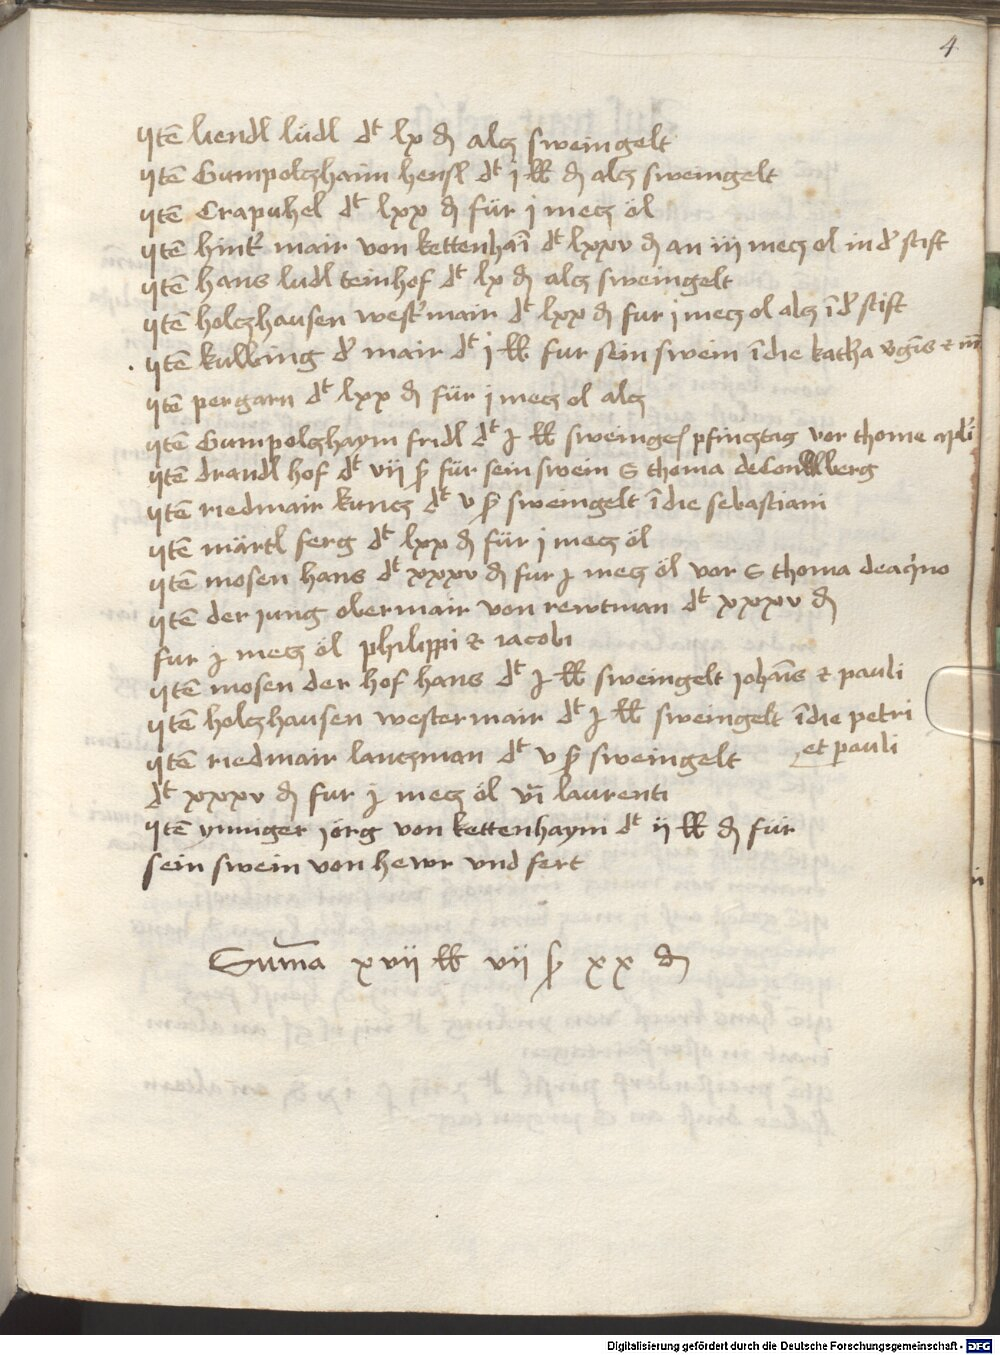 4
Jtē liendl lüdl dt lx ₰ alcz sweingelt
Jtē Gumpolczhaim hensl dt j ℔ ₰ alcz sweingelt
Jtē Crapuhel dt lxx ₰ für j mecz öl
Jtē hint' mair von kettenhaī dt lxxv ₰ an iij mecz ol in d' stift
Jtē hans ludl teinhof dt lx ₰ alcz sweingelt
Jtē holczhausen west'mair dt lxx ₰ fur j mecz ol alcz ī d' stift
Jtē kulbing d' mair dt j ℔ fur sein swein ī die katha
Jtē pergarn dt lxx ₰ für j mecz ol alcz
Jtē Gumpolczhaym fridl dt j ℔ sweingel pfincztag vor thome apli
Jtē drandl hof dt vij ß für sein swein S thoma de
Jtē riedmair kuncz dt v ß sweingelt ī die sebastiani
Jtē märtl ferg dt lxx ₰ für j mecz öl
Jtē mosen hans dt xxxv ₰ fur j mecz öl vor S thoma de aq'no
Jtē der jung obermair von rewtman dt xxxv ₰
fur j mecz öl philippi et iacobi
Jtē mosen der hof hans dt j ℔ sweingelt johānis et pauli
Jtē holczhausen westermair dt j ℔ sweingelt ī die petri
et pauli
Jtē riedmair lanczman dt v ß sweingelt
dt xxxv ₰ fur j mecz öl laurenti
Jtē ynniger jörg von kettenhaym dt ij ℔ ₰ für
sein swein von hewr vnd fert
Sum̄a xvij ℔ vij ß xx ₰
Digitalisierung gefördert durch die Deutsche Forschungsgemeinschaft - DFG